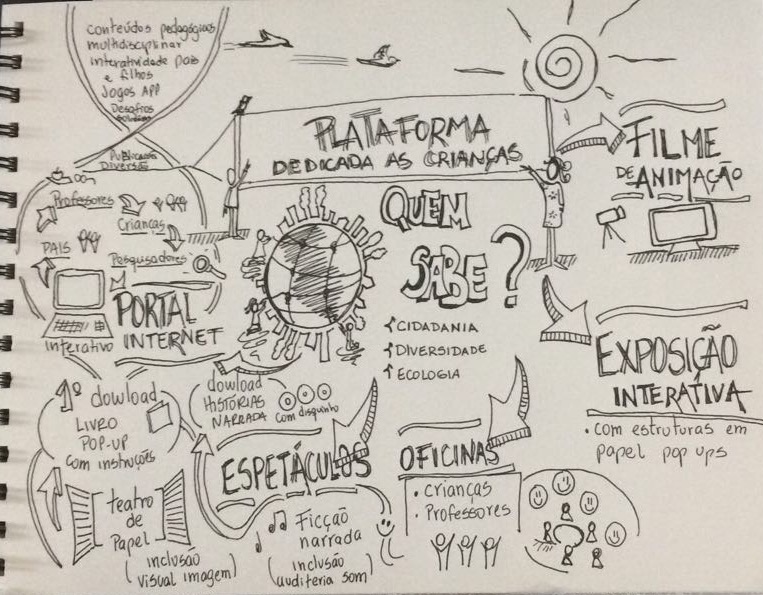 conteúdos pedagógicos
multidisciplinar
interatividade pais
e filhos
Jogos APP
Desafios
Publicação
Diversas
PLATAFORMA
DEDICADA AS CRIANÇAS
FILME
DE ANIMAÇÃO
Professores
Crianças
PAIS
Pesquisadores
PORTAL
INTERNET
interativo
QUEM
SABE?
CIDADANIA
DIVERSIDADE
ECOLOGIA
EXPOSIÇÃO
INTERATIVA
• com estruturas em
papel pop ups
1º dowload
LIVRO
POP-UP
com instruções
dowload
HISTÓRIAS
NARRADA
com disquinho
ESPETÁCULOS
OFICINAS
• crianças
• Professores
teatro
de
Papel
(inclusão
visual imagem)
Ficção
narrada
(inclusão
auditeria som)